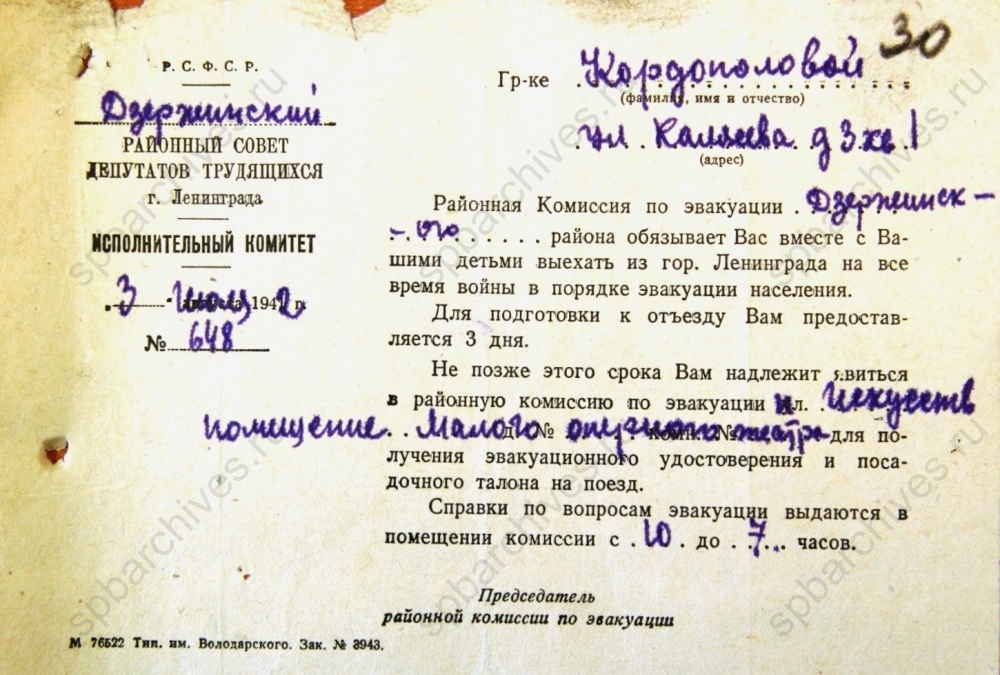 30
Р. С. Ф. С. Р.
Дзержинский
РАЙОННЫЙ СОВЕТ
ДЕПУТАТОВ ТРУДЯЩИХСЯ
г. Ленинграда
ИСПОЛНИТЕЛЬНЫЙ КОМИТЕТ
3 июля 1942 г.
№ 648
Гр-ке Кордополовой
(фамилия, имя и отчество)
ул. Каляева д 3 кв. 1
(адрес)
Районная Комиссия по эвакуации Дзержинск-
-ого района обязывает Вас вместе с Ва-
шими детьми выехать из гор. Ленинграда на все
время войны в порядке эвакуации населения.
Для подготовки к отъезду Вам предостав-
ляется 3 дня.
Не позже этого срока Вам надлежит явиться
в районную комиссию по эвакуации пл. Искусств
помещение Малого д. № оперного комн. № театра для по-
лучения эвакуационного удостоверения и поса-
дочного талона на поезд.
Справки по вопросам эвакуации выдаются в
помещении комиссии с 10 до 7 часов.
Председатель
районной комиссии по эвакуации
М 76522 Тип. им. Володарского. Зак. № 3943.
spbarchives.ru